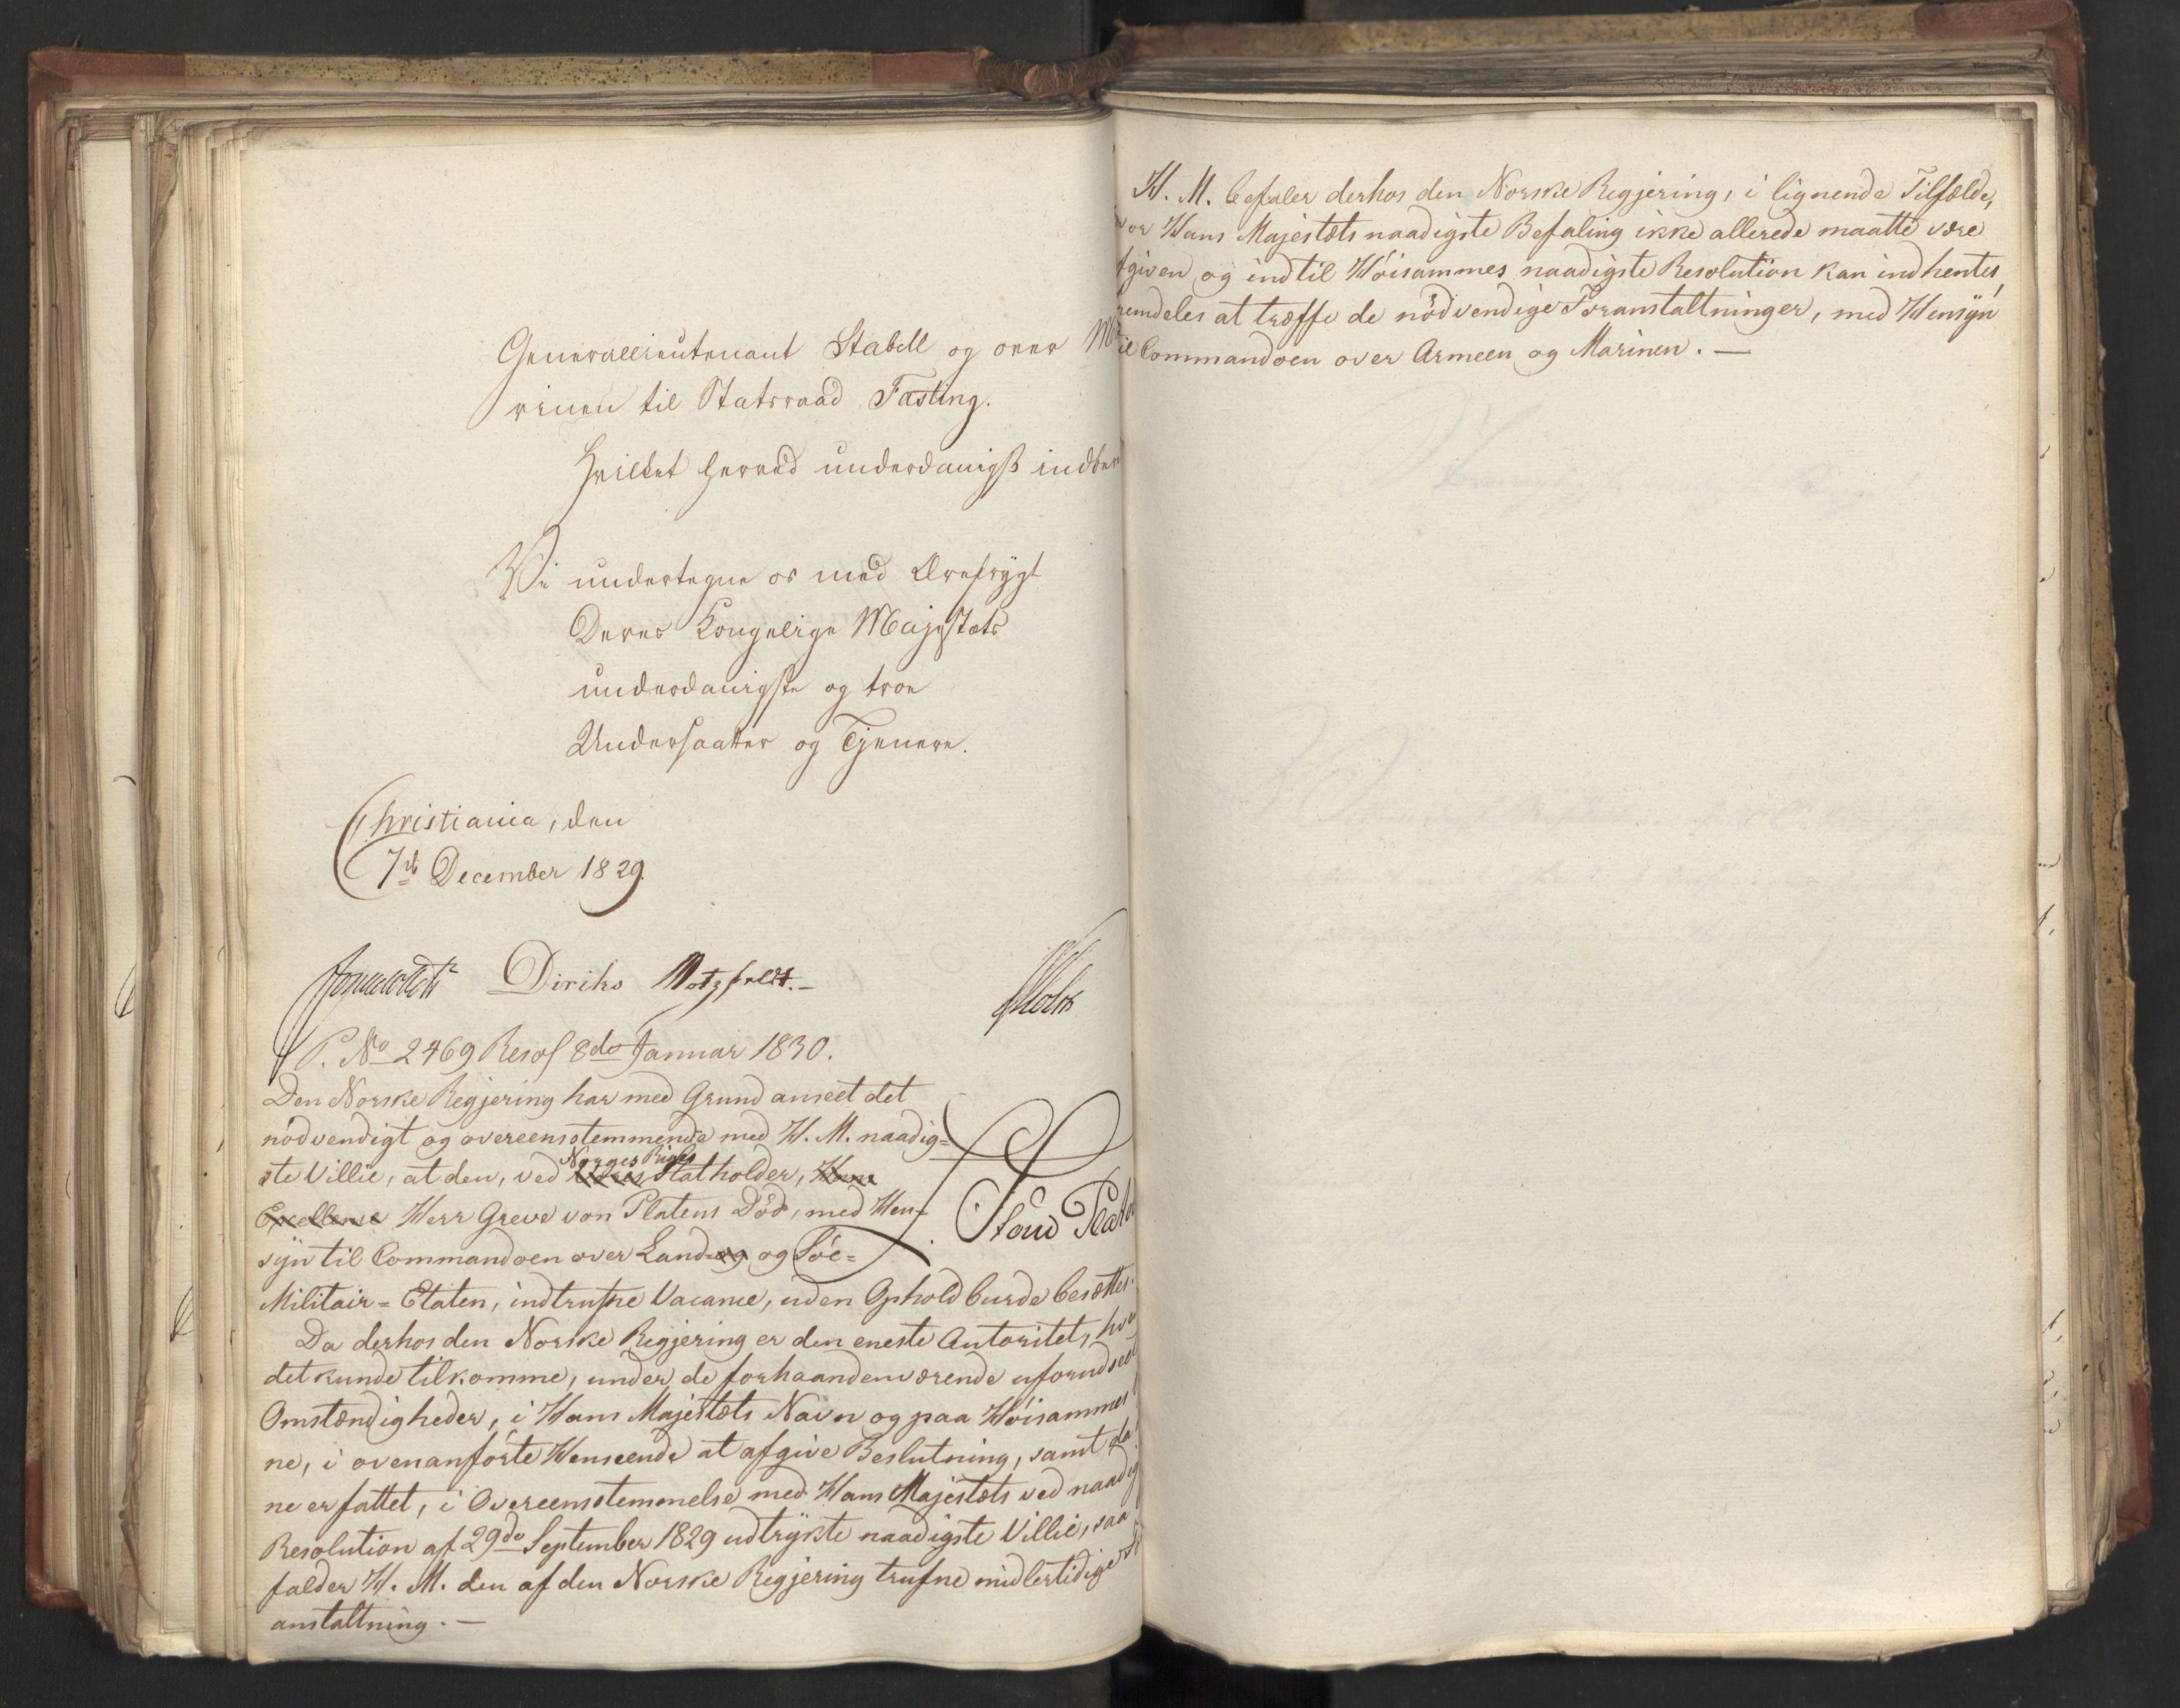 Generallieutenant Stabell og over Ma
rinen til Statsraad Fasting.
Hvilket herved underdanigst indbe
Vi undertegne os med Ærefrygt
Deres Kongelige Majestæts
underdanigste og troe
Undersaatter og Tjenere.
Christiania, den
7de December 1829.
Diriks Motzfeldt.-
Holst
P. No 2469 Resol 8de Januar 1830.
Den Norske Regjering har med Grund anseet det
nödvendigt og overeensstemmende med H. M. naadig=
Norges Riges
ste Villie, at den, ved Statholder, Hans
Excellence Herr Greve von Platens Död, med Hen-
syn til Commandoen over Land-og og Söe=
Militair=Etaten, indtrufne Vacance, uden Ophold burde besættes.
Da derhos den Norske Regjering er den eneste Autoritet, hvo
det kunde tilkomme, under de forhaandenværende uforudsee
Omstændigheder, i Hans Majestæts Navn og paa Höisammes
ne, i ovenanförte Henseende at afgive Beslutning, samt da
ne er fattet, i Overeensstemmelse med Hans Majestæts ved naadig
Resolution af 29de September 1829 udtrykte naadigste Villie, saa
falder H. M. den af den Norske Regjering trufne midlertidige
anstaltning.-
H. M. befaler derhos den Norske Regjering, i lignende Tilfælde,
vor Hans Majestæts naadigste Befaling ikke allerede maatte være
fgiven og indtil Höisammes naadigste Resolution kan indhentes,
remdeles at træffe de nödvendige Foranstaltninger, med Hensyn
il Commandoen over Armeen og Marinen.-